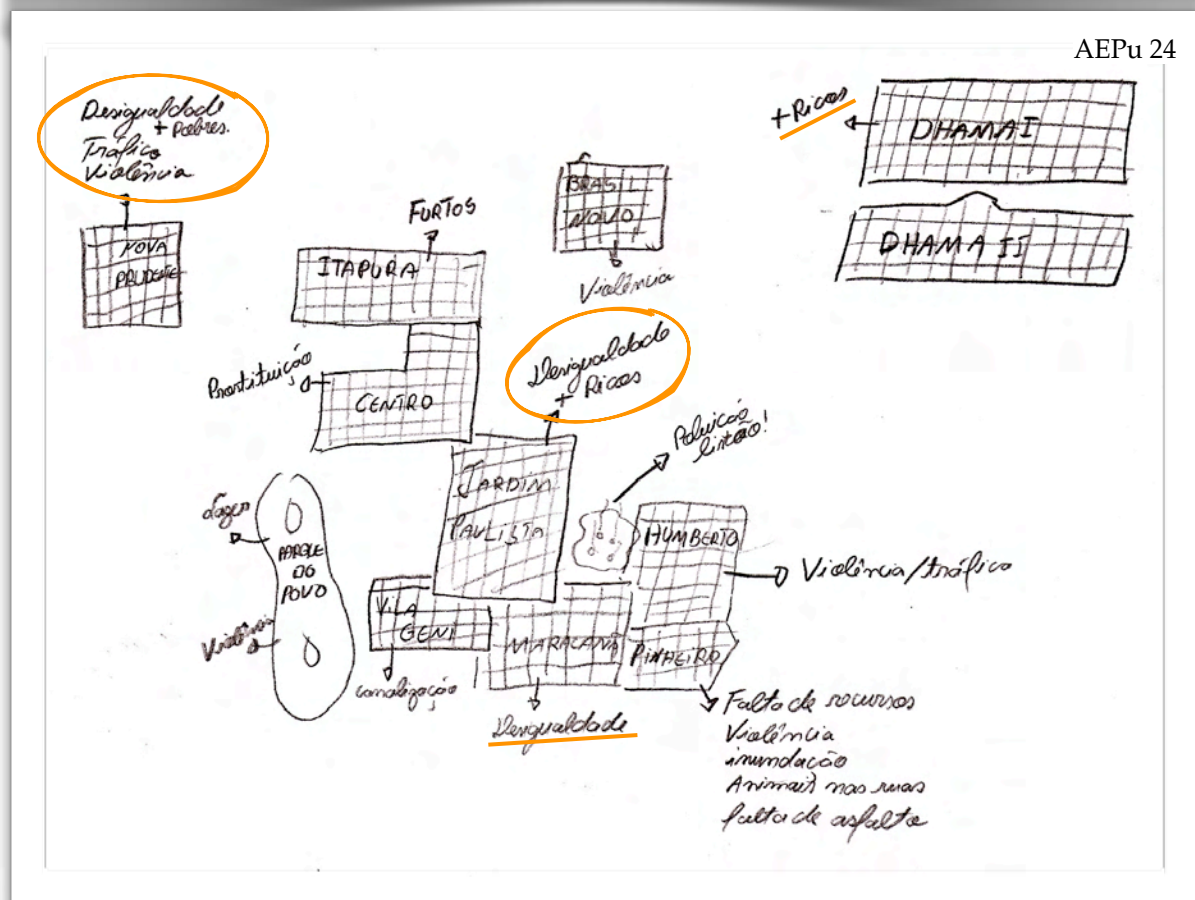 AEPu 24
Desigualdade
+ Pobres.
Tráfico
Violência
NOVA
PRUDENTE
FURTOS
ITAPURA
BRASIL
NOVO
Violência
+ Ricos
DHAMA I
DHAMA II
Prostituição
CENTRO
Desigualdade
+ Ricos
JARDIM
PAULISTA
Poluição
lixão!
HUMBERTO
Violência/tráfico
PARQUE
DO
POVO
Violência
VILA
GENI
canalização
MARACANÃ
Desigualdade
PINHEIRO
Falta de recursos
Violência
inundação
Animais nas ruas
falta de asfalto